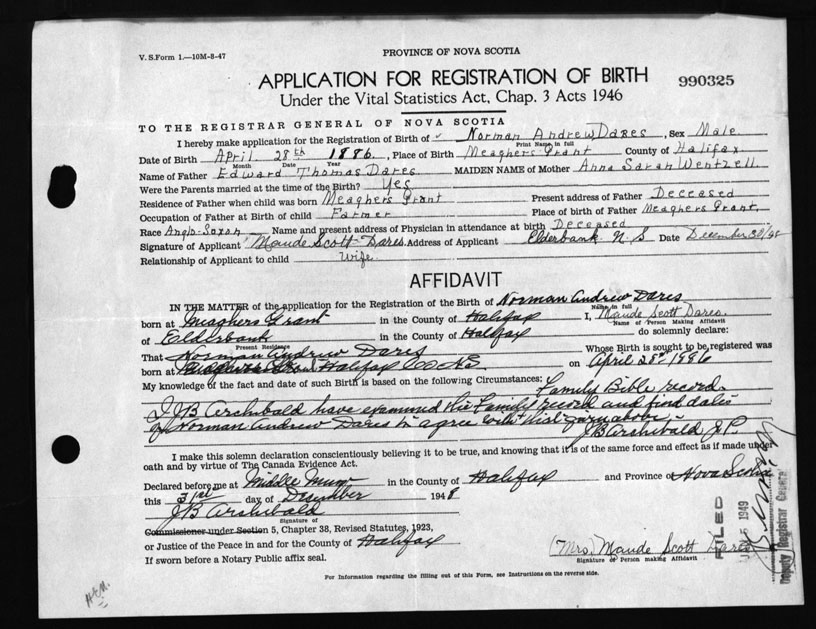 V. S. Form 1.—10M-8-47
PROVINCE OF NOVA SCOTIA
APPLICATION FOR REGISTRATION OF BIRTH
990325
Under the Vital Statistics Act, Chap. 3 Acts 1946
TO THE REGISTRAR GENERAL OF NOVA SCOTIA
I hereby make application for the Registration of Birth of Norman Andrew Dares, Sex Male
Print Name in full
Date of Birth April 28th 1886, Place of Birth Meaghers Grant County of Halifax
Month Date Year
Name of Father Edward Thomas Dares MAIDEN NAME of Mother Anna Sarah Wentzell
Were the Parents married at the time of the Birth? Yes
Residence of Father when child was born Meaghers Grant Present address of Father Deceased
Occupation of Father at Birth of child Farmer Place of birth of Father Meaghers Grant
Race Anglo-Saxon Name and present address of Physician in attendance at birth Deceased
Signature of Applicant Maude Scott Dares Address of Applicant Elderbank N. S Date December 30/48
Relationship of Applicant to child Wife
AFFIDAVIT
IN THE MATTER of the application for the Registration of the Birth of Norman Andrew Dares
Name in full
born at Meaghers Grant in the County of Halifax I, Maude Scott Dares.
Name of Person Making Affidavit
of Elderbank in the County of Halifax do solemnly declare:
Present Residence
That Norman Andrew Dares Whose Birth is sought to be registered was
born at Halifax Co N S on April 28th 1886
My knowledge of the fact and date of such Birth is based on the following Circumstances: Family Bible record.
I JB Archibald have examined this Family record and find dates
of Norman Andrew Dares to agree with that given above -
JB Archibald J.P.
I make this solemn declaration conscientiously believing it to be true, and knowing that it is of the same force and effect as if made under
oath and by virtue of The Canada Evidence Act.
Declared before me at Middle Musq in the County of Halifax and Province of Nova Scotia
this 31st day of December 1948
JB Archibald
Signature of
Commissioner under Section 5, Chapter 38, Revised Statutes, 1923,
or Justice of the Peace in and for the County of Halifax
If sworn before a Notary Public affix seal.
(Mrs.) Maude Scott Dares
Signature of Person making Affidavit
For Information regarding the filling out of this Form, see Instructions on the reverse side.
FILED
1949
Deputy Registrar General